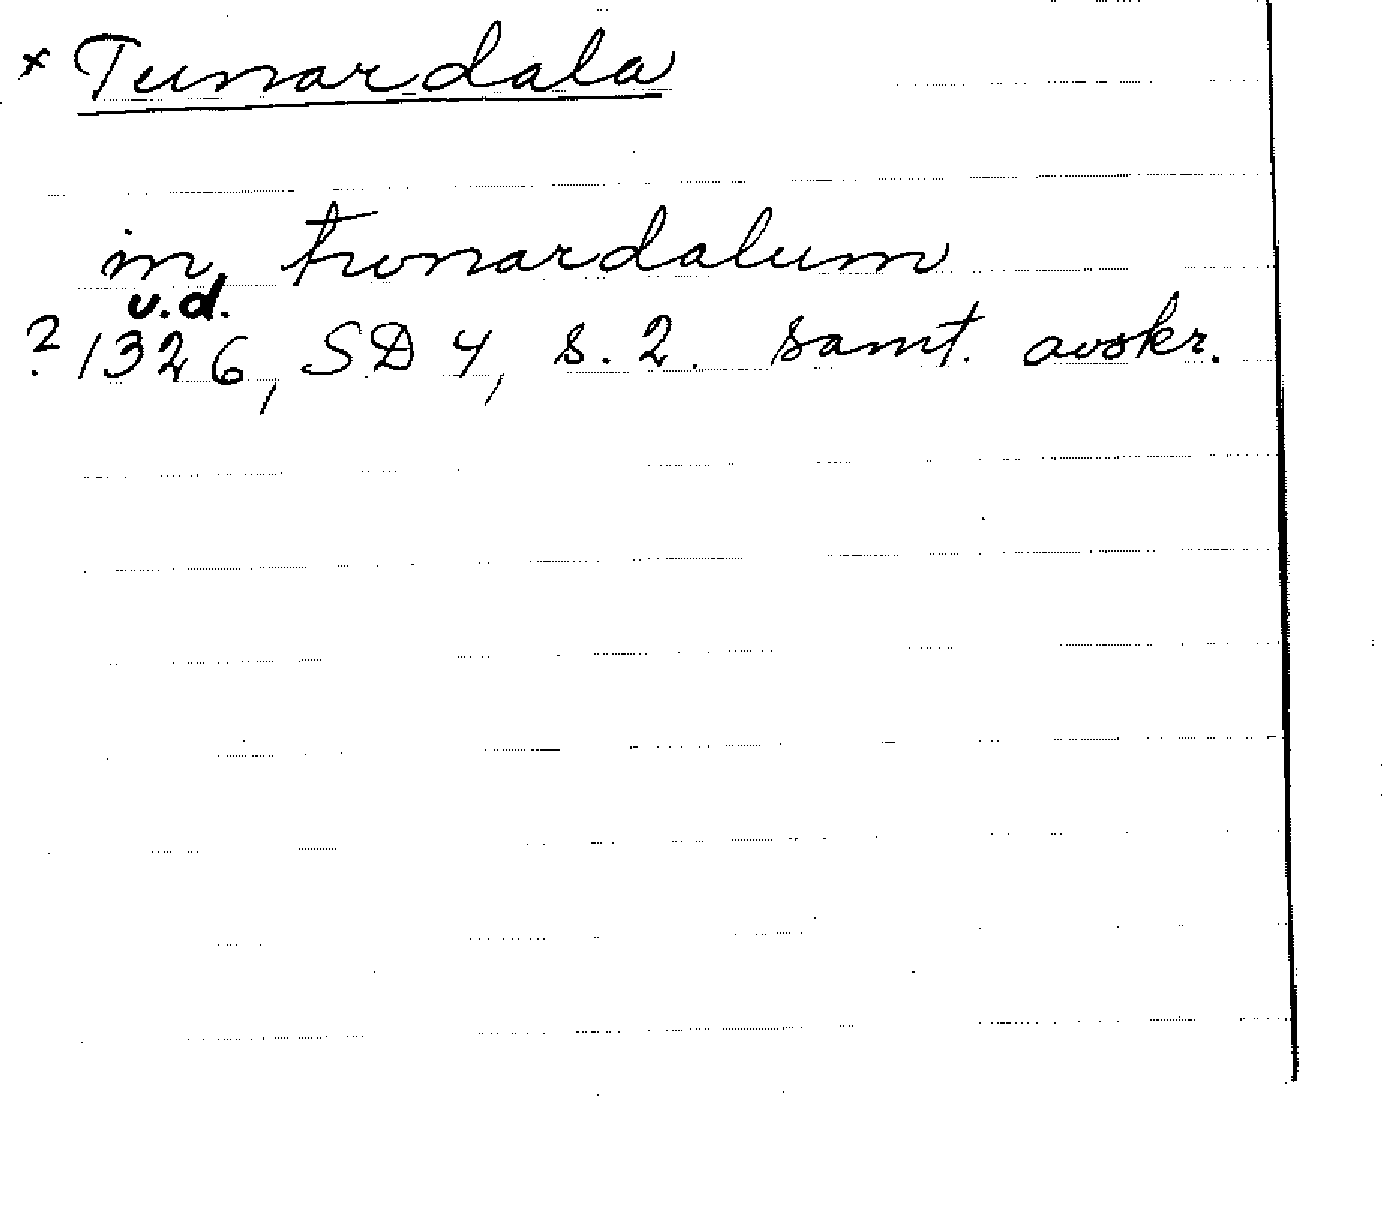 * Tunardala
in tronardalum
u.d.
? 1326, SD 4, s. 2. samt. avskr.